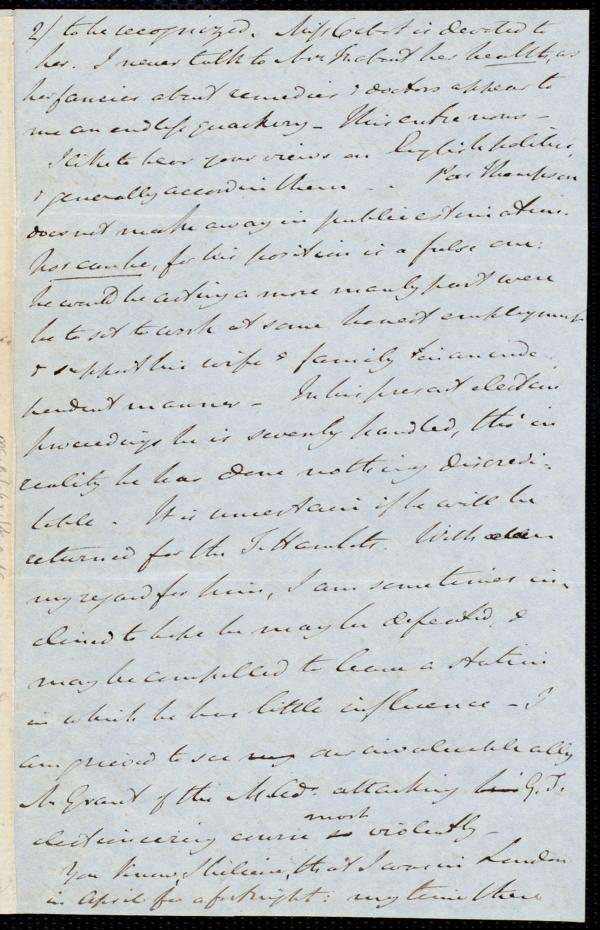 2/ to be recognized. Miss Cabot is devoted to
her. I never talk to Mrs F. about her health, as
her fancies about remedies & doctors appear to
me an endless quackery - This entre nous -
I like to hear your views on English politics,
& generally accord in them - . Poor Thompson
does not make away in public estimation.
Nor can he, for his position is a false one:
he would be acting a more manly part were
he to set to work at some honest employment
& support his wife & family in an inde-
pendent manner - In his present election
proceedings he is severely handled, tho' in
reality he has done nothing discredi-
table. It is uncertain if he will be
returned for the T. Hamlets. With
my regard for him, I am sometimes in-
clined to hope he may be defeated, &
may be compelled to leave a station
in which he has little influence - I
am grieved to see our invaluable ally
Mr Grant of the M. Ad. attacking G. T.'s
electioneering course most violently -
You know, I believe, that I was in London
in April for a fortnight: my time there